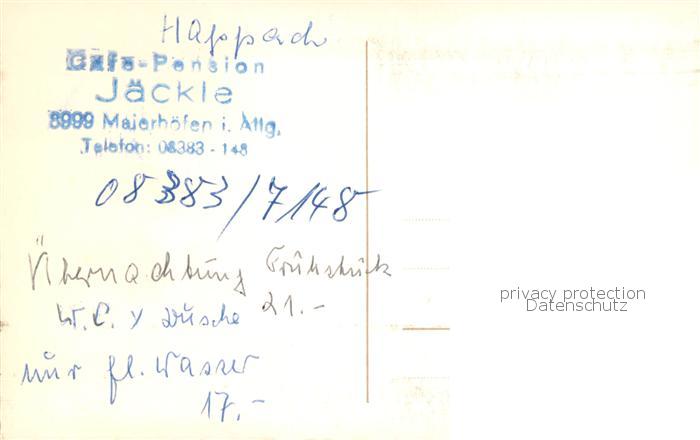 Happach
Cafe-Pension
Jäckle
8999 Maierhöfen i. Allg.
Telefon: 08383 - 148
08383/7148
Übernachtung Frühstück
W.C. Dusche 21.-
nur fl. Wasser
17.-
privacy protection
Datenschutz